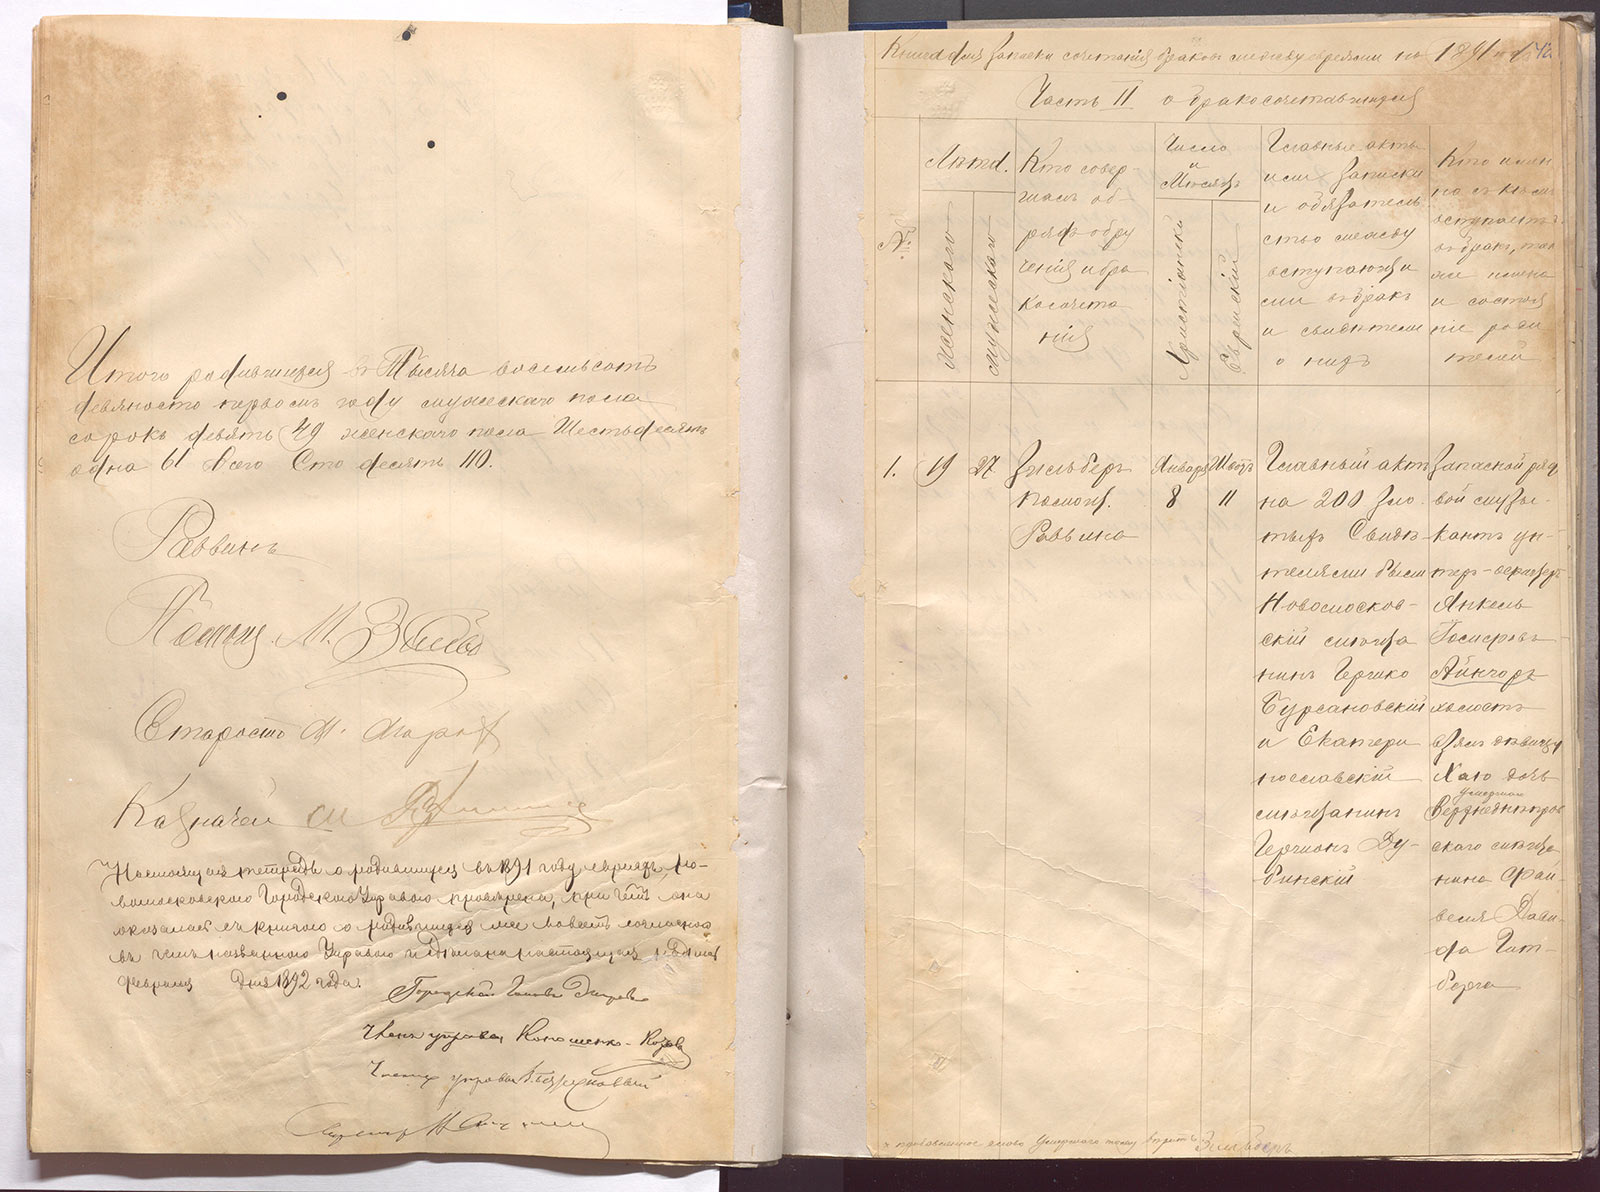 Итого родившихся в Тысяча восемьсотъ
девяносто первомъ году мужескаго пола
сорокъ девять 49 женскаго пола Шестьдесятъ
одна 61 Всего Сто десять 110.
Раввинъ
М.
Староста
Казначей
Настоящая тетрадь о родившихся въ 1891 году евреяхъ Но-
вомосковского Городского Управою проверена, при чемъ она
оказалась съ книгою о родившихся
въ чемъ
февраля Дня 1892 года.
Городской Голова
Членъ управы Кономенко-
Членъ управы
Книга для записки сочетанія браковъ между евреями на 1891 годъ 42
Часть II о бракосочетавшихся
№.
Лѣта.
Женскаго
Мужескаго
Кто совер-
шалъ об-
рядъ обру
ченія и бра
косочета
нія
Число
и
Мѣсяцъ
Христіанскій
Еврейскій
Главные акты
или записки
и обязатель
ство между
вступающи
ми въ бракъ
и свидѣтели
о нихъ
Кто имен
но съ кѣмъ
вступаетъ
въ бракъ, так
же имена
и состоя
ніе роди
телей
1.
19
27
Зильберъ
помощ.
Раввина
Января
8
Шватъ
11
Главный актъ
на 200 зло
тыхъ Свидѣ
телями были
Новомосков-
скій мѣща
нинъ Гершко
Бурсановскій
и Екатери
нославскій
мѣщанинъ
Гершонъ Ду-
бинскій
Запасной ряд
вой музы-
кантъ ун-
теръ-офицеръ
Янкель
Айнгорнъ
холостъ
взялъ дѣвицу
Хаю дочь
умершаго
Верхнеднѣпров
скаго мѣща
нина Фай-
веля Дави-
да Гит-
берга
прибавленное слово умершаго тому вѣрить Зильберъ